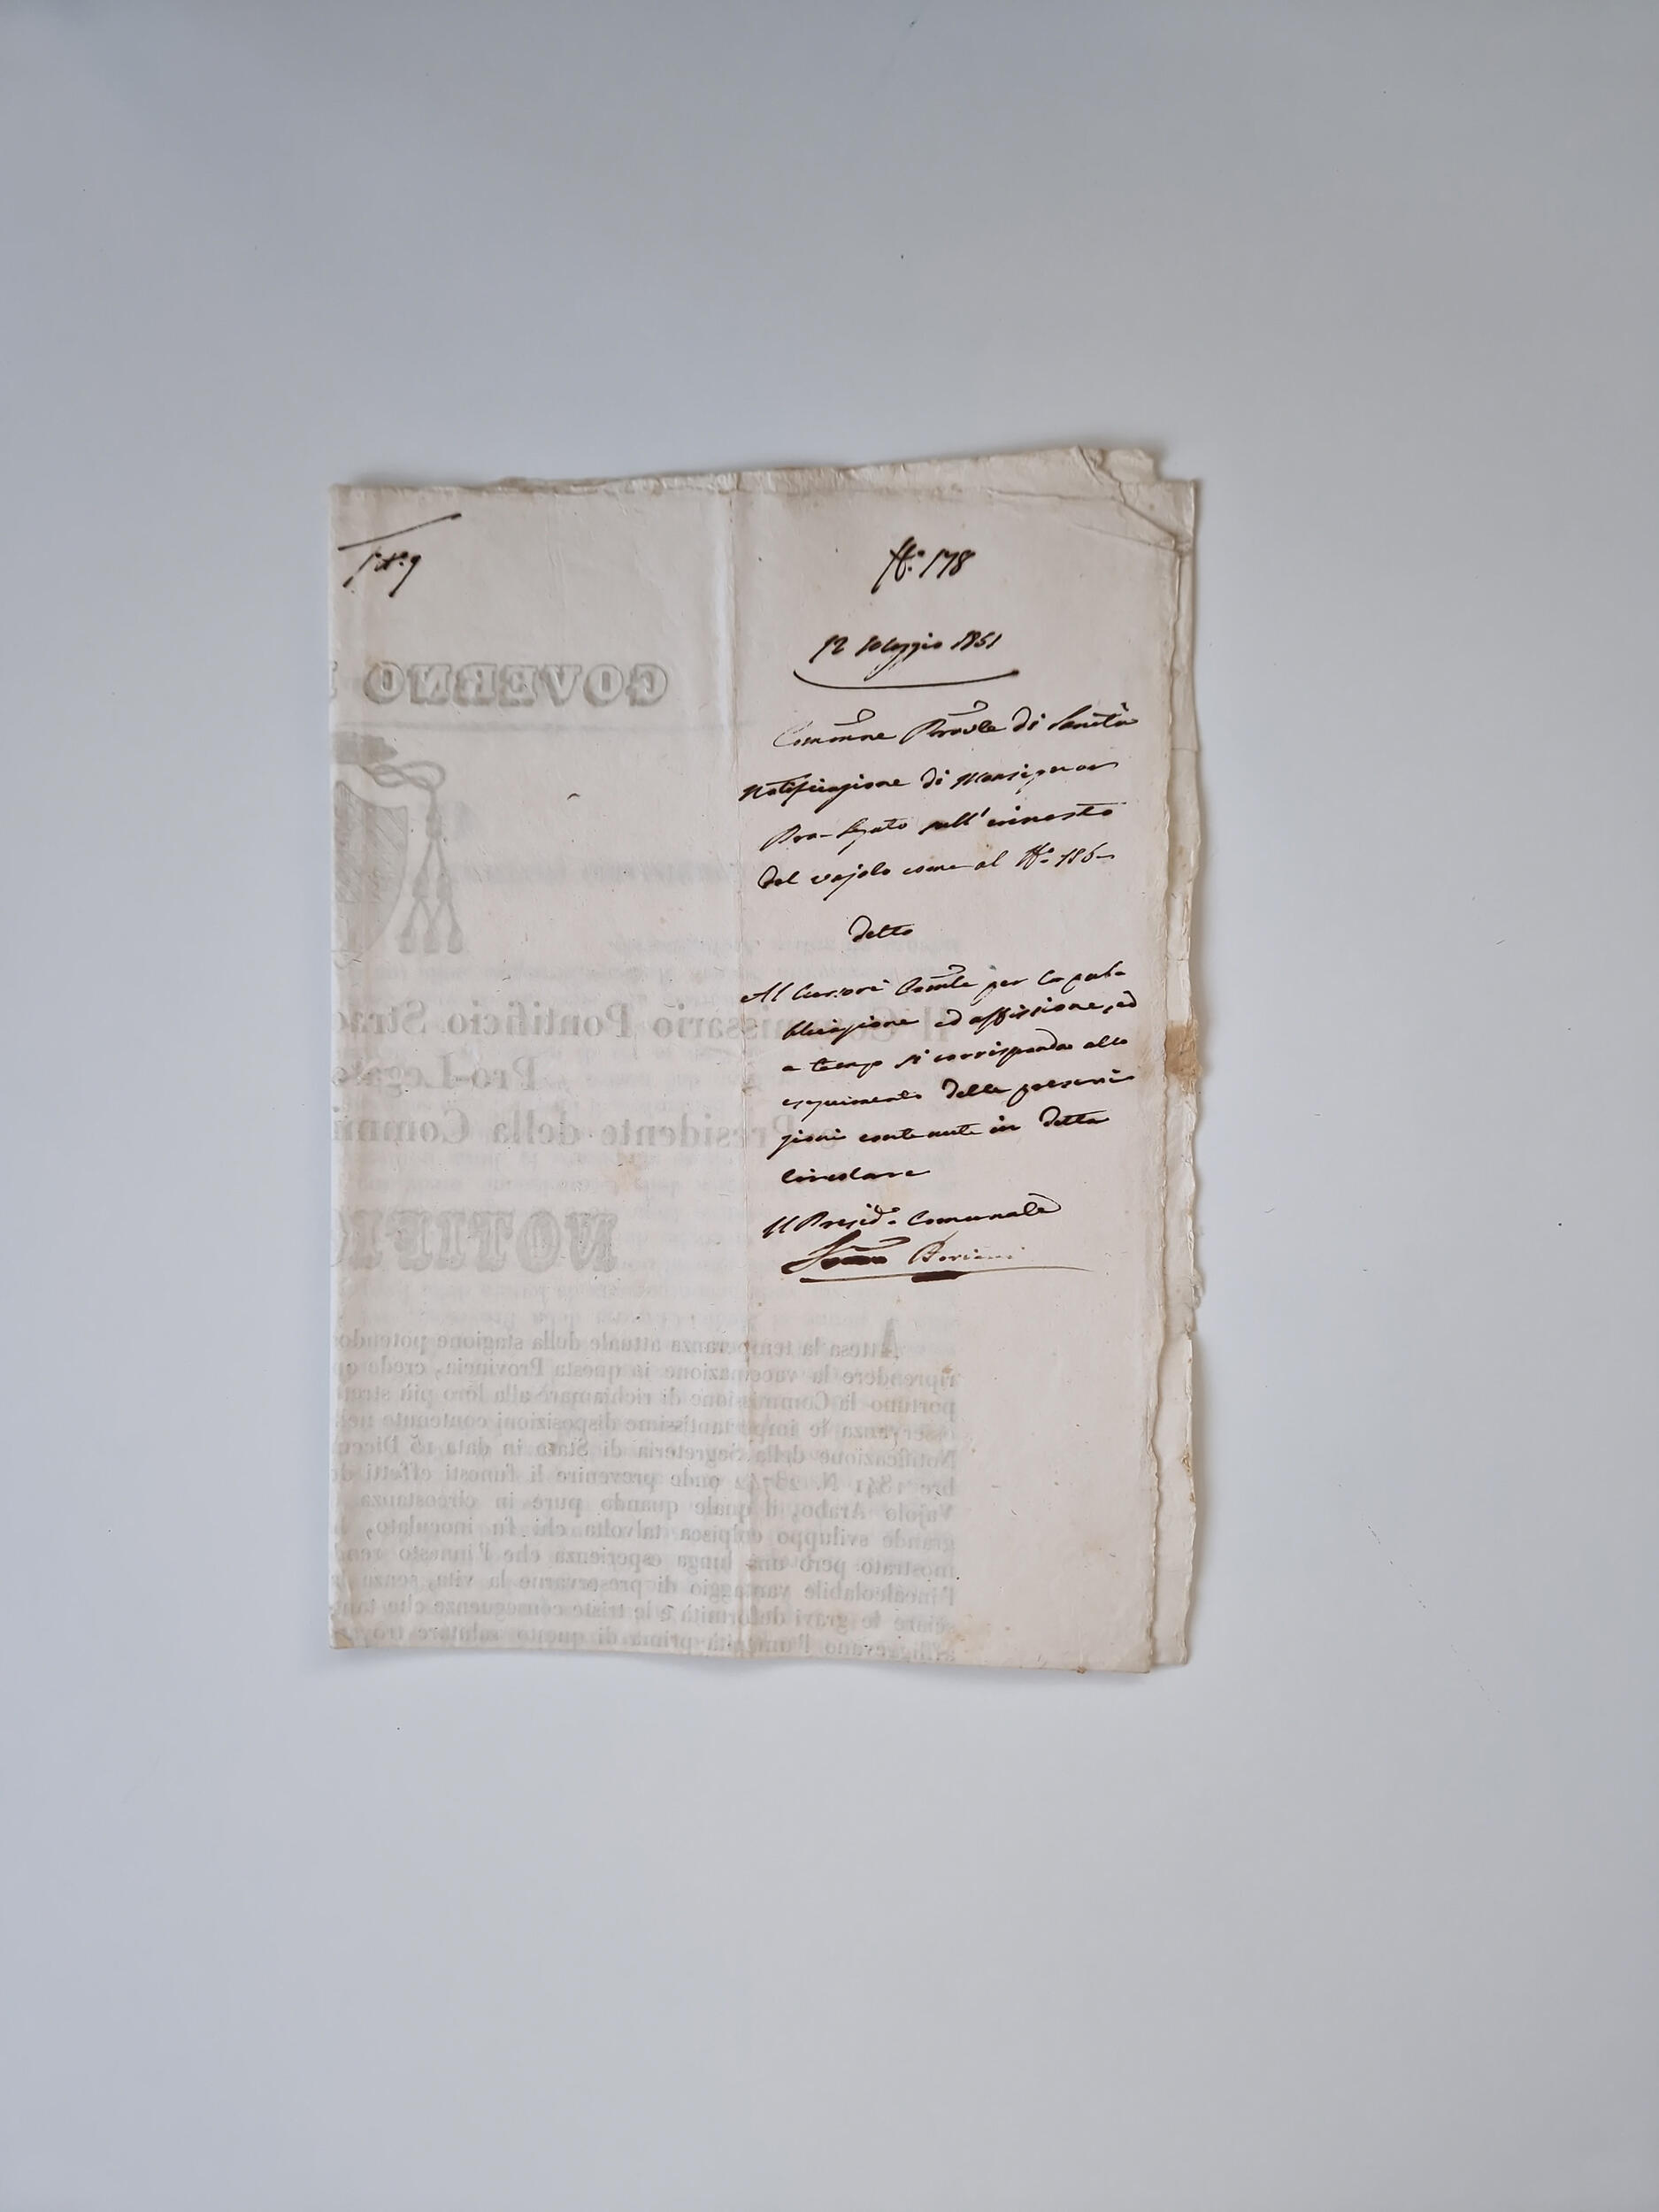 N.° 178
12 Maggio 1851
Commne Provle di Sanità
Notificazione di Monsignor
Pro-Legato sull'innesto
del vajolo come al N.° 186
detto
Al Cursore Comle per la pub-
blicazione ed affissione, ed
a tempo si corrisponda allo
eseguimento delle prescri-
zioni contenute in detta
Circolare
Il Presid.e Comunale
GOVERNO
Il Commissario Pontificio Strao
Pro-Legato
e Presidente della Commi
NOTIFIC
Attesa la temperanza attuale della stagione potendo
riprendere la vaccinazione in questa Provincia, crede op
portuno la Commissione di richiamare alla loro più stret
osservanza le importantissime disposizioni contenute nel
Notificazione della Segreteria di Stato in data 15 Dicem
bre 1841 N. 23742 onde prevenire li funesti effetti de
Vajolo Arabo, il quale quando pure in circostanza
grande sviluppo colpisca talvolta chi fu inoculato,
mostrato però una lunga esperienza che l'innesto rend
l'incalcolabile vantaggio di preservarne la vita, senza
sciare le gravi deformità e le triste conseguenze che tant
affliggevano l'umanità prima di questo salutare trov